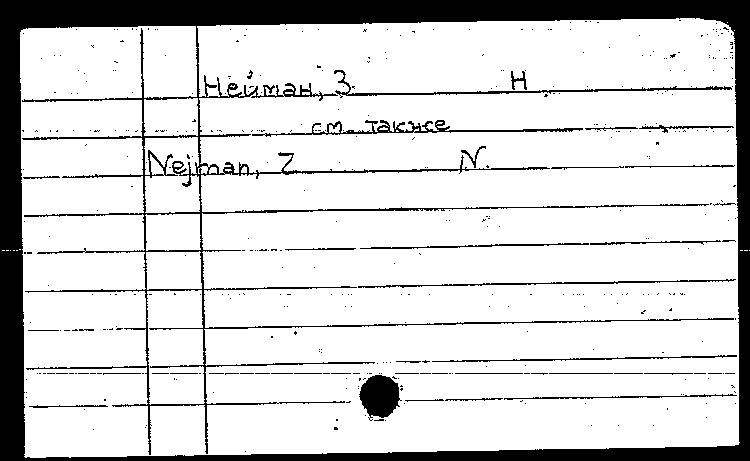 Нейман, З. Н
см. также
Nejman, Z N.